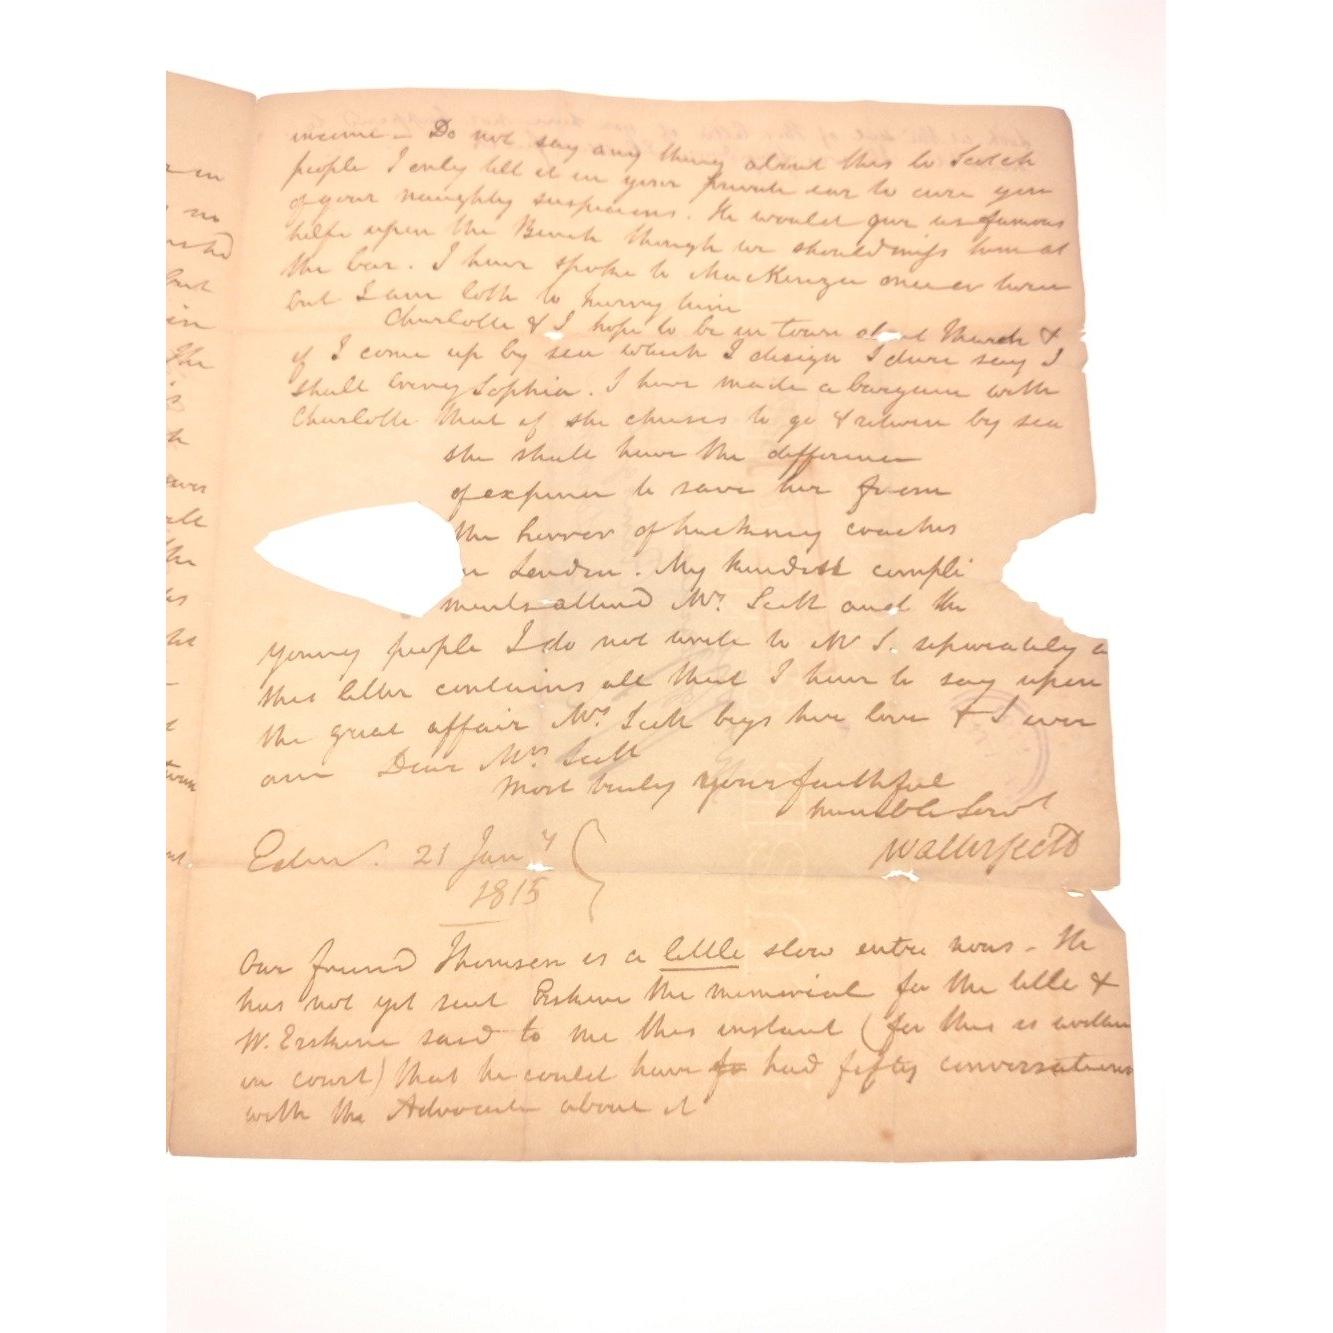 income - Do not say any thing about this to Scotch
people I only tell it in your private ear to cure you
of your naughty suspicions. He would give us famous
helpe upon the Bench though we should miss him at
the bar. I have spoke to MacKenzie once or twice
but I am loth to hurry him
Charlotte & I hope to be in town about March &
if I come up by sea which I design I dare say I
shall bring Sophia. I have made a bargain with
Charlotte that if she chuses to go & return by sea
she shall have the difference
of expence to save her from
the horror of hackney coaches
in London. My kindest compli
ments attend Mr. Scott and the
young people I do not write to Mr S. separately a
this letter contains all that I have to say upon
the great affair Mrs. Scott begs her love & I ever
am Dear Mrs Scott
Most truly your faithful
humble Servt
Walter Scott
Edinr. 21 Jany
1815
Our friend Thomson is a little slow entre nous - He
has not yet sent Erskine the memorial for the title &
W. Erskine said to me this instant (for this is written
in court) that he could have fo had fifty conversations
with the Advocate about it